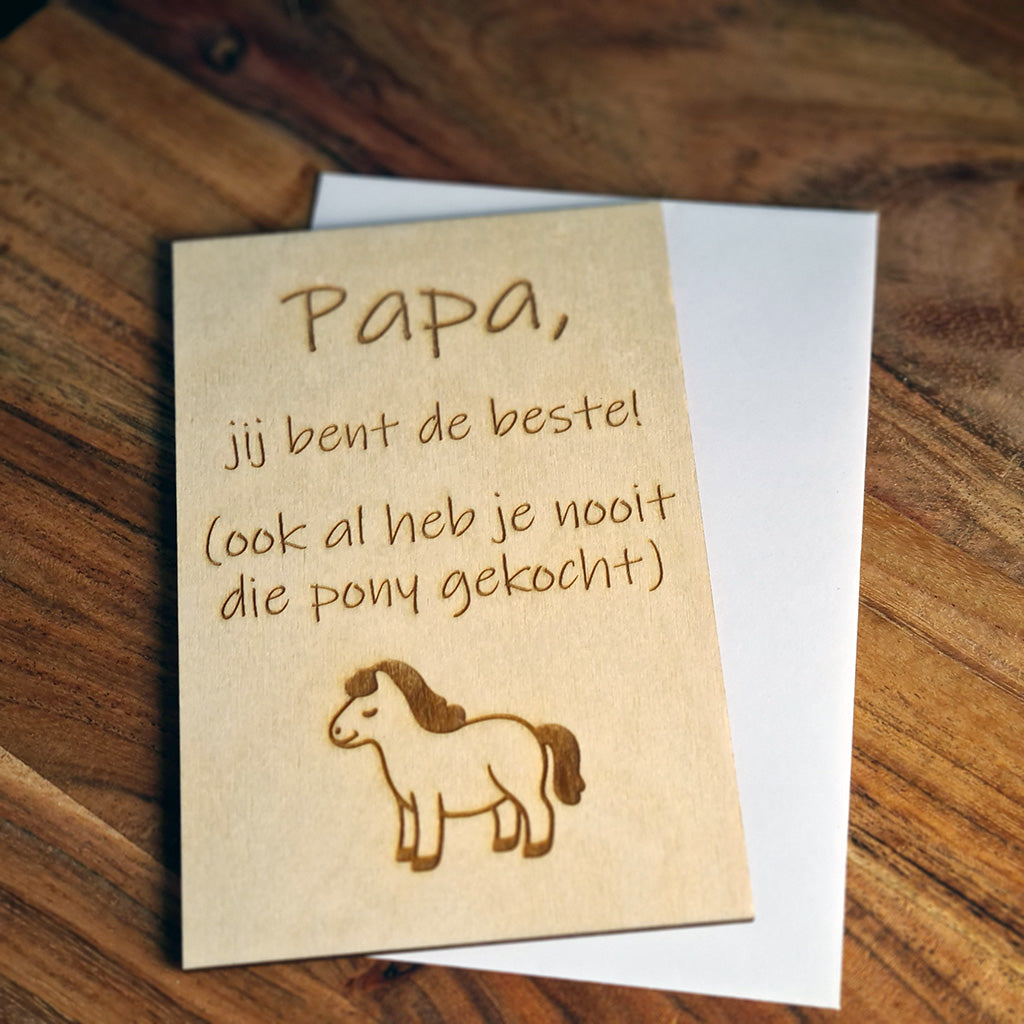 Papa,
jij bent de beste!
(ook al heb je nooit
die pony gekocht)